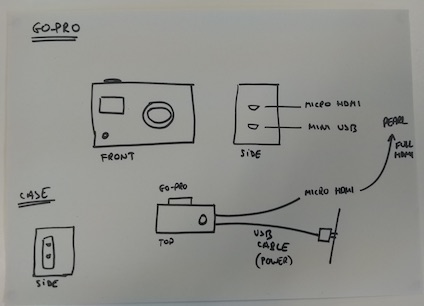 GO-PRO
FRONT
SIDE
MICRO HDMI
MINI USB
PEARL
FULL
HDMI
CASE
SIDE
GO-PRO
TOP
MICRO HDMI
USB
CABLE
(POWER)